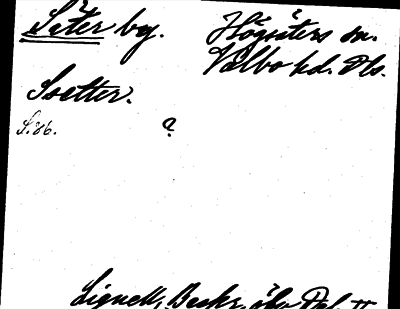 Säter bg. Högsäters sn.
Valbo hd. Dls.
Ssetter.
S. 86. ?
Lignell, Beskr. öfv. Dal. II